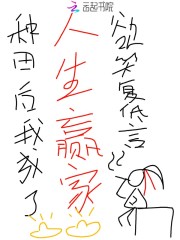 云起书院
种田后我成了
人生赢家
欲笑复低言